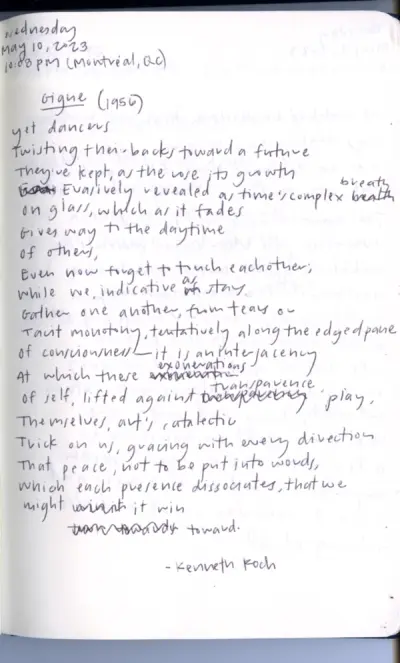 Wednesday
May 10, 2023
10:08 pm (Montréal, QC)
Gigue (1956)
yet dancers
Twisting their backs toward a future
They've kept, as the rose its growth
Evasively revealed as time's complex breath
On glass, which as it fades
Gives way to the daytime
Of others,
Even now forget to touch eachother;
While we, indicative as stay,
Gather one another, from tears or
Taut monotony, tentatively along the edged pane
Of consciousness—it is an interjacency
At which these exonerations
Of self, lifted against transparence play,
Themselves, art's catalectic
Trick on us, gracing with every direction
That peace, not to be put into words,
Which each presence dissociates, that we
Might it win
toward.
-Kenneth Koch